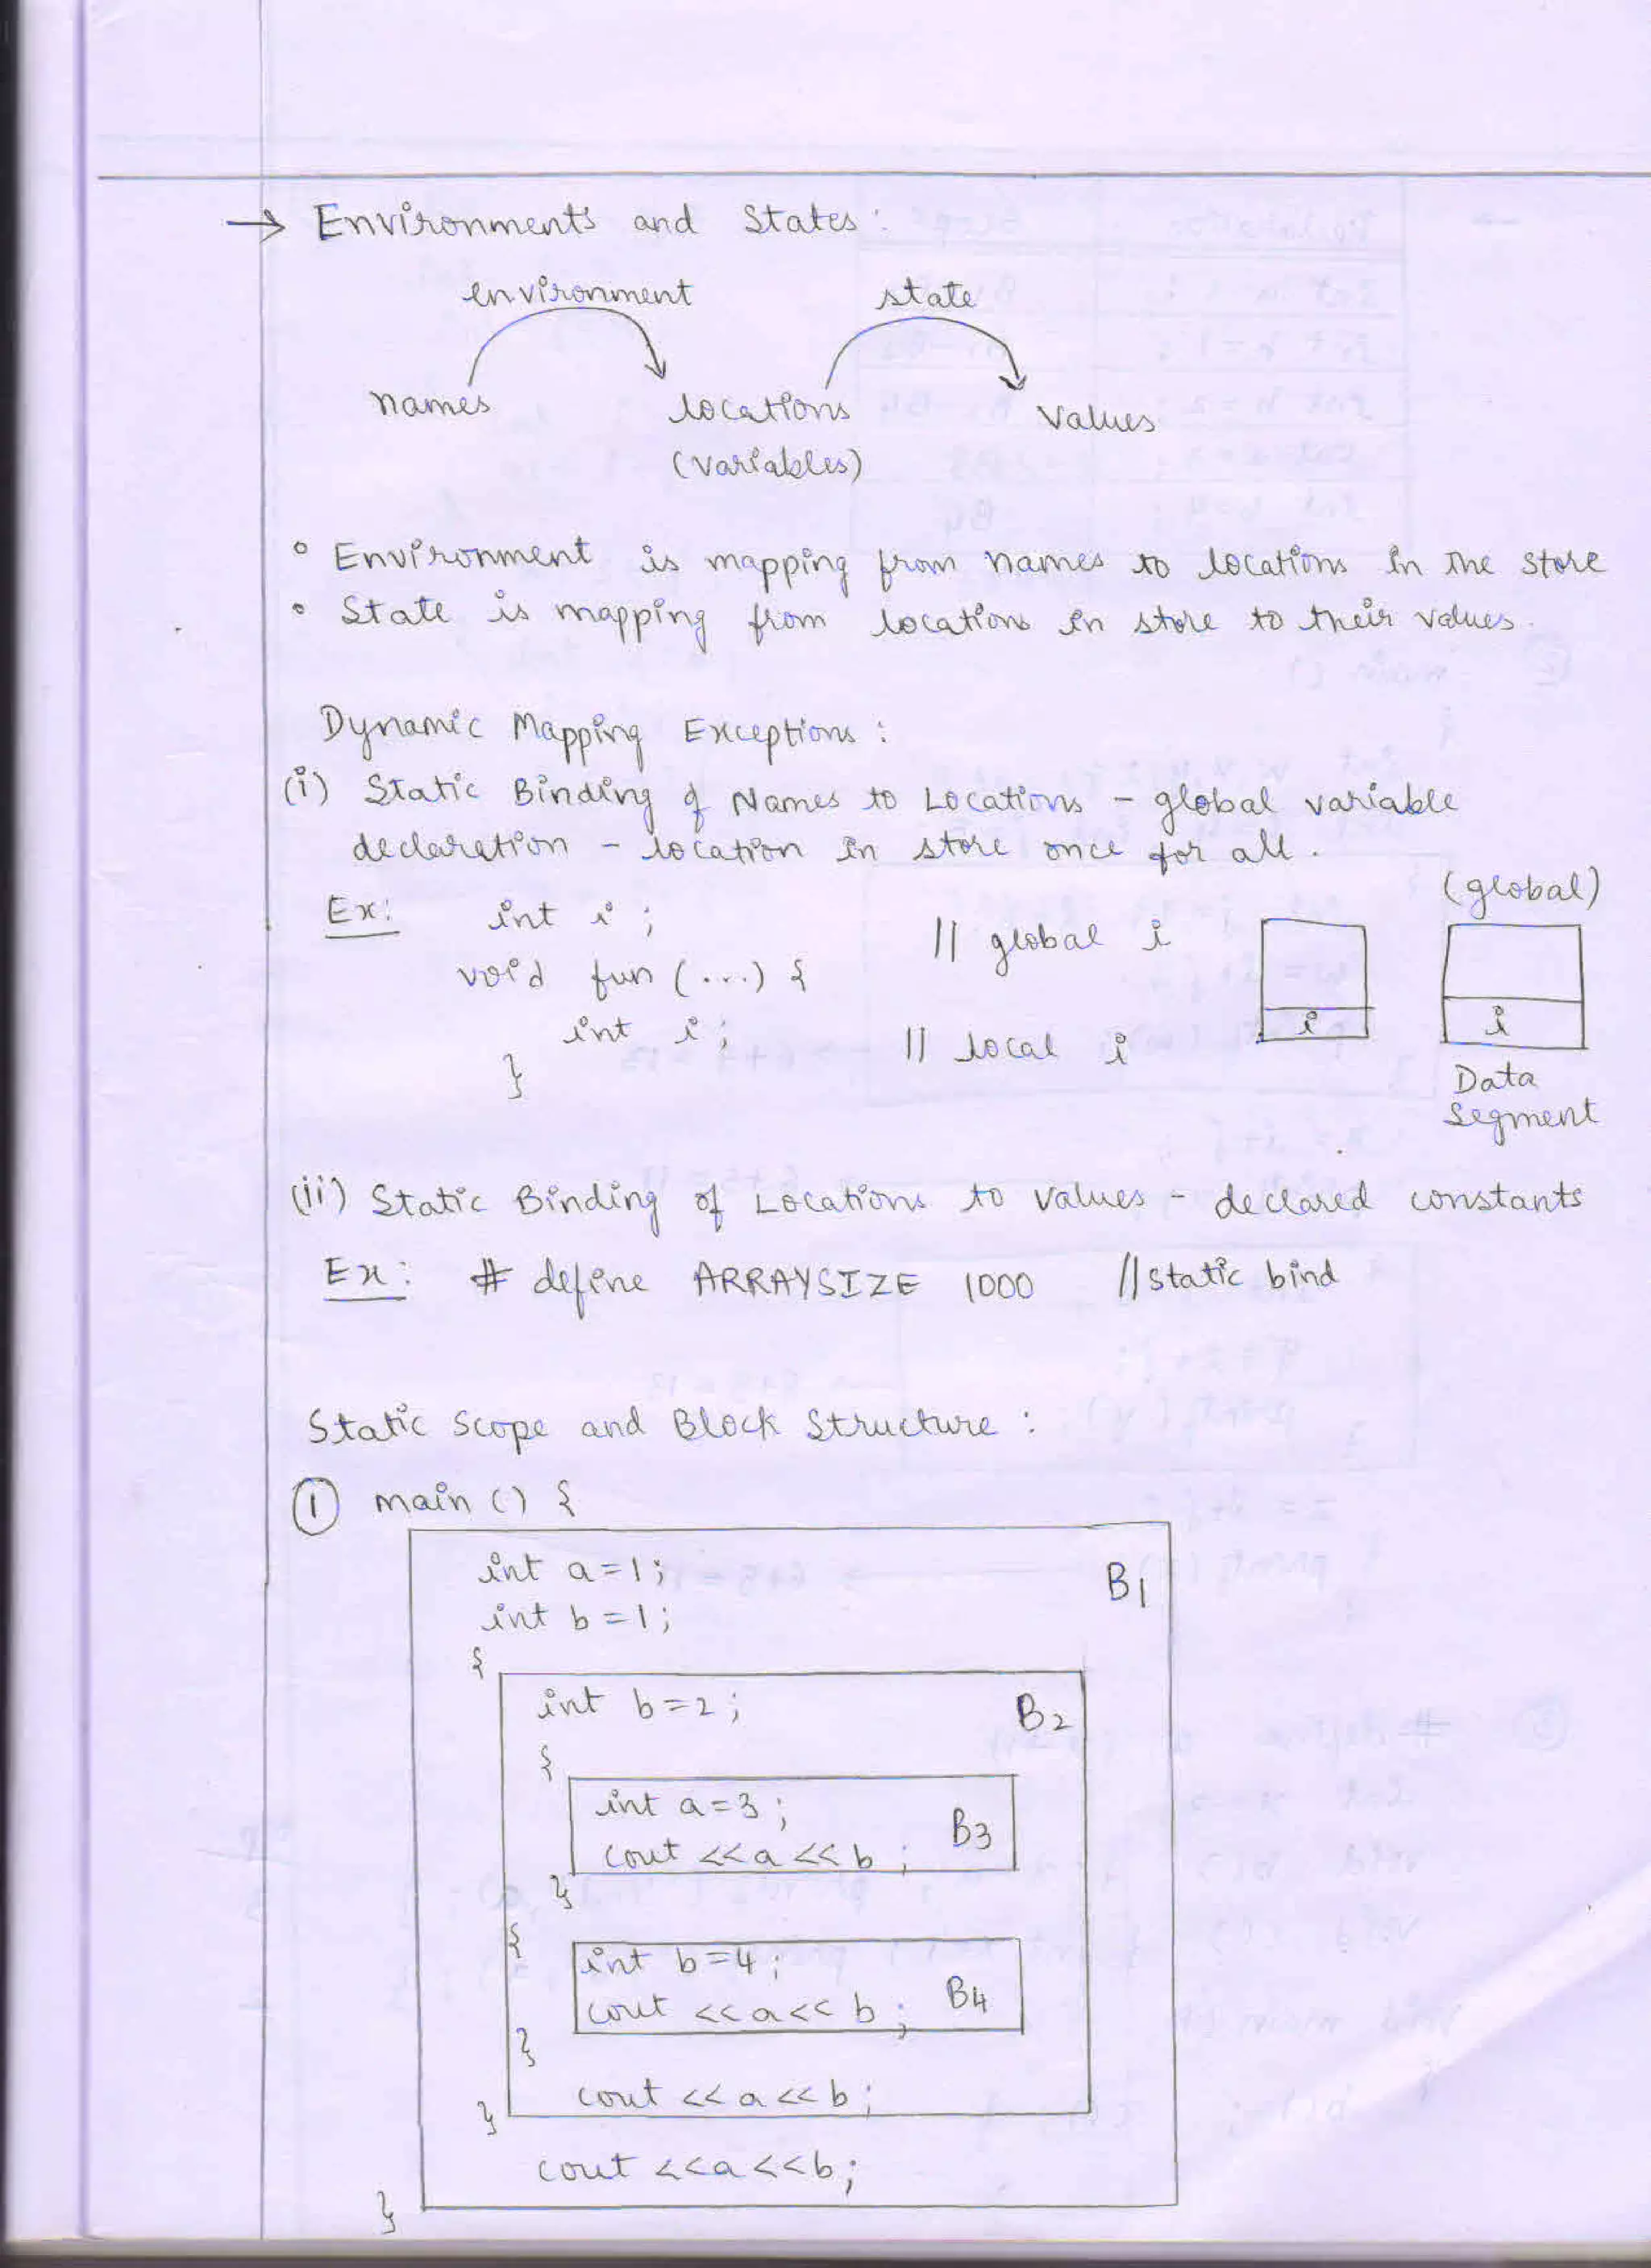 → Environments and States:
environment state
names locations values
(variables)
° Environment is mapping from names to locations in the store
° State is mapping from locations in store to their values.
Dynamic Mapping Exceptions:
(i) Static Binding of Names to Locations - global variable
declaration - location in store once for all.
(global)
Ex: int i; // global i
void fun (...) {
int i; // local i
i i
}
Data
Segment
(ii) Static Binding of Locations to values - declared constants
Ex: # define ARRAYSIZE 1000 //static bind
Static Scope and Block Structure:
① main () {
int a=1; B1
int b=1;
{
int b=2; B2
{
int a=3;
cout <<a<<b; B3
}
{
int b=4;
cout <<a<<b; B4
}
cout <<a<<b;
}
cout <<a<<b;
}